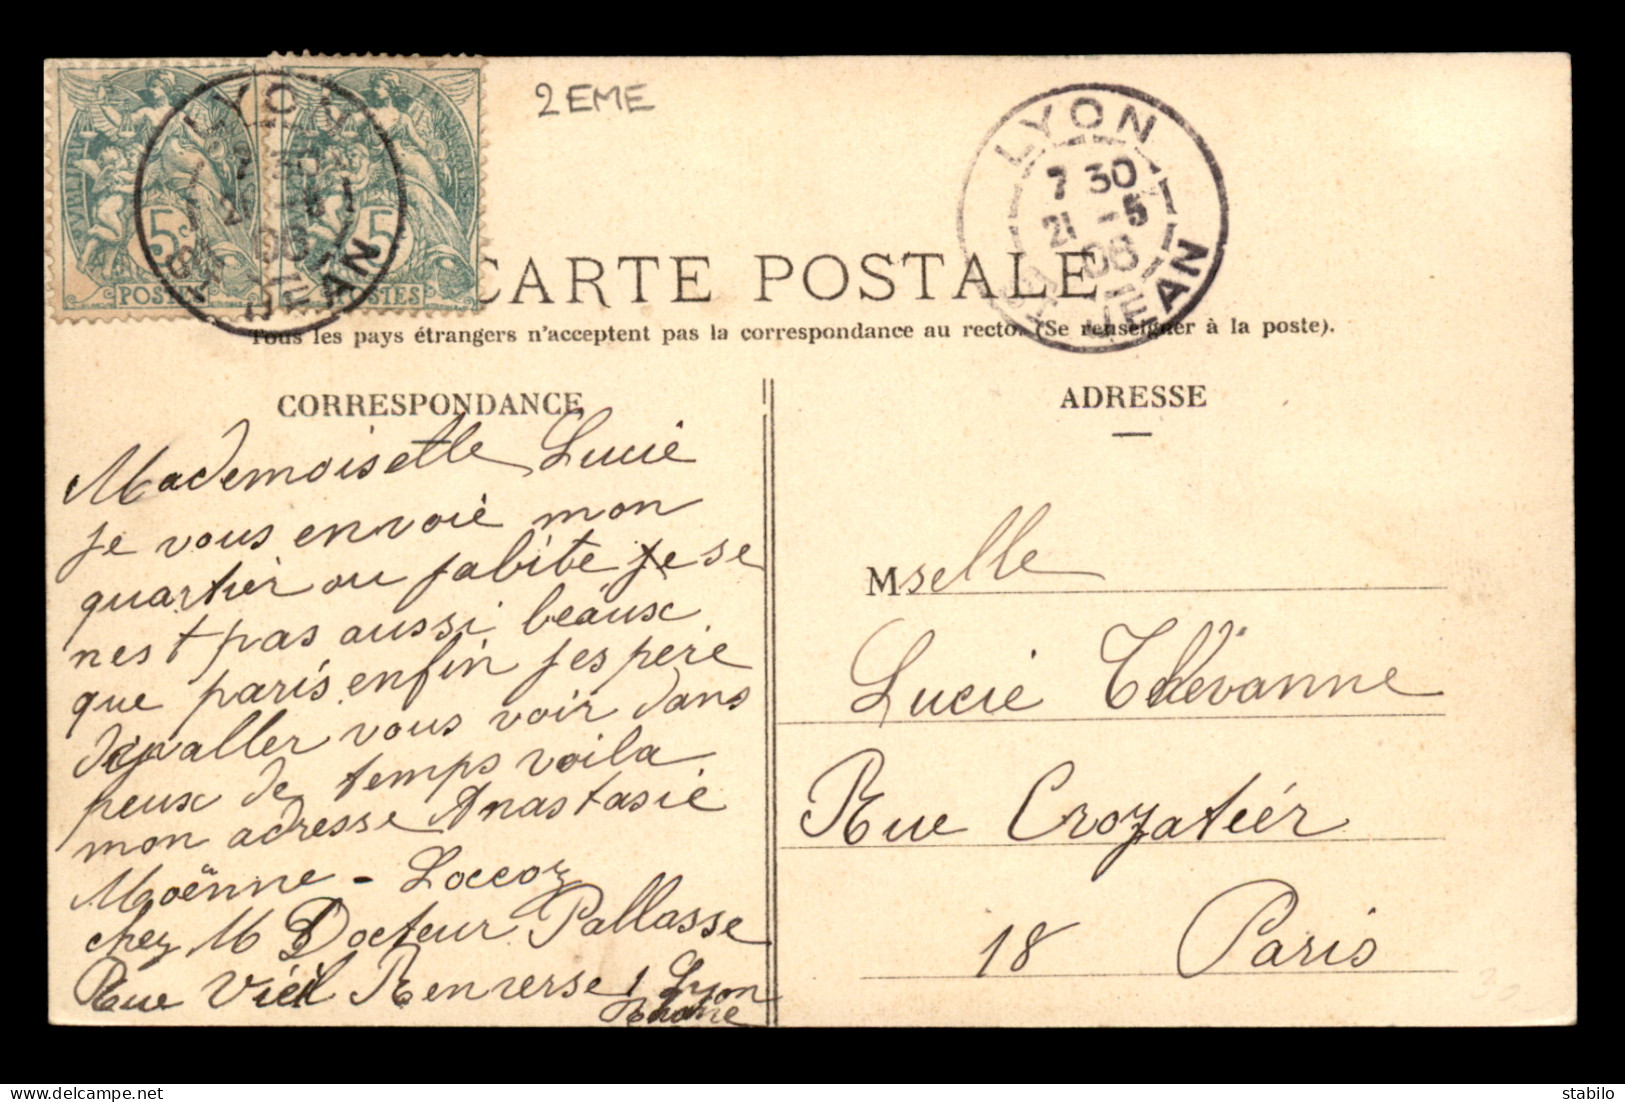 2 EME
RÉPUBLIQUE FRANÇAISE
5
POSTES
5
POSTES
LYON
ST JEAN
LYON
7 30
21 -5
08
ST JEAN
CARTE POSTALE
Tous les pays étrangers n'acceptent pas la correspondance au recto. (Se renseigner à la poste).
CORRESPONDANCE
Mademoiselle Lucie
je vous envoie mon
quartier ou jabite se
nest pas aussi beaux
que paris enfin jespère
aller vous voir dans
peux de temps voila
mon adresse Anastasie
Moënne - Loccoz
chez M Docteur Pallasse
Rue Vieil Renverse 1 Lyon
Rhône
ADRESSE
Mselle
Lucie Thévanne
Rue Crozatier
18 Paris
30
stabilo